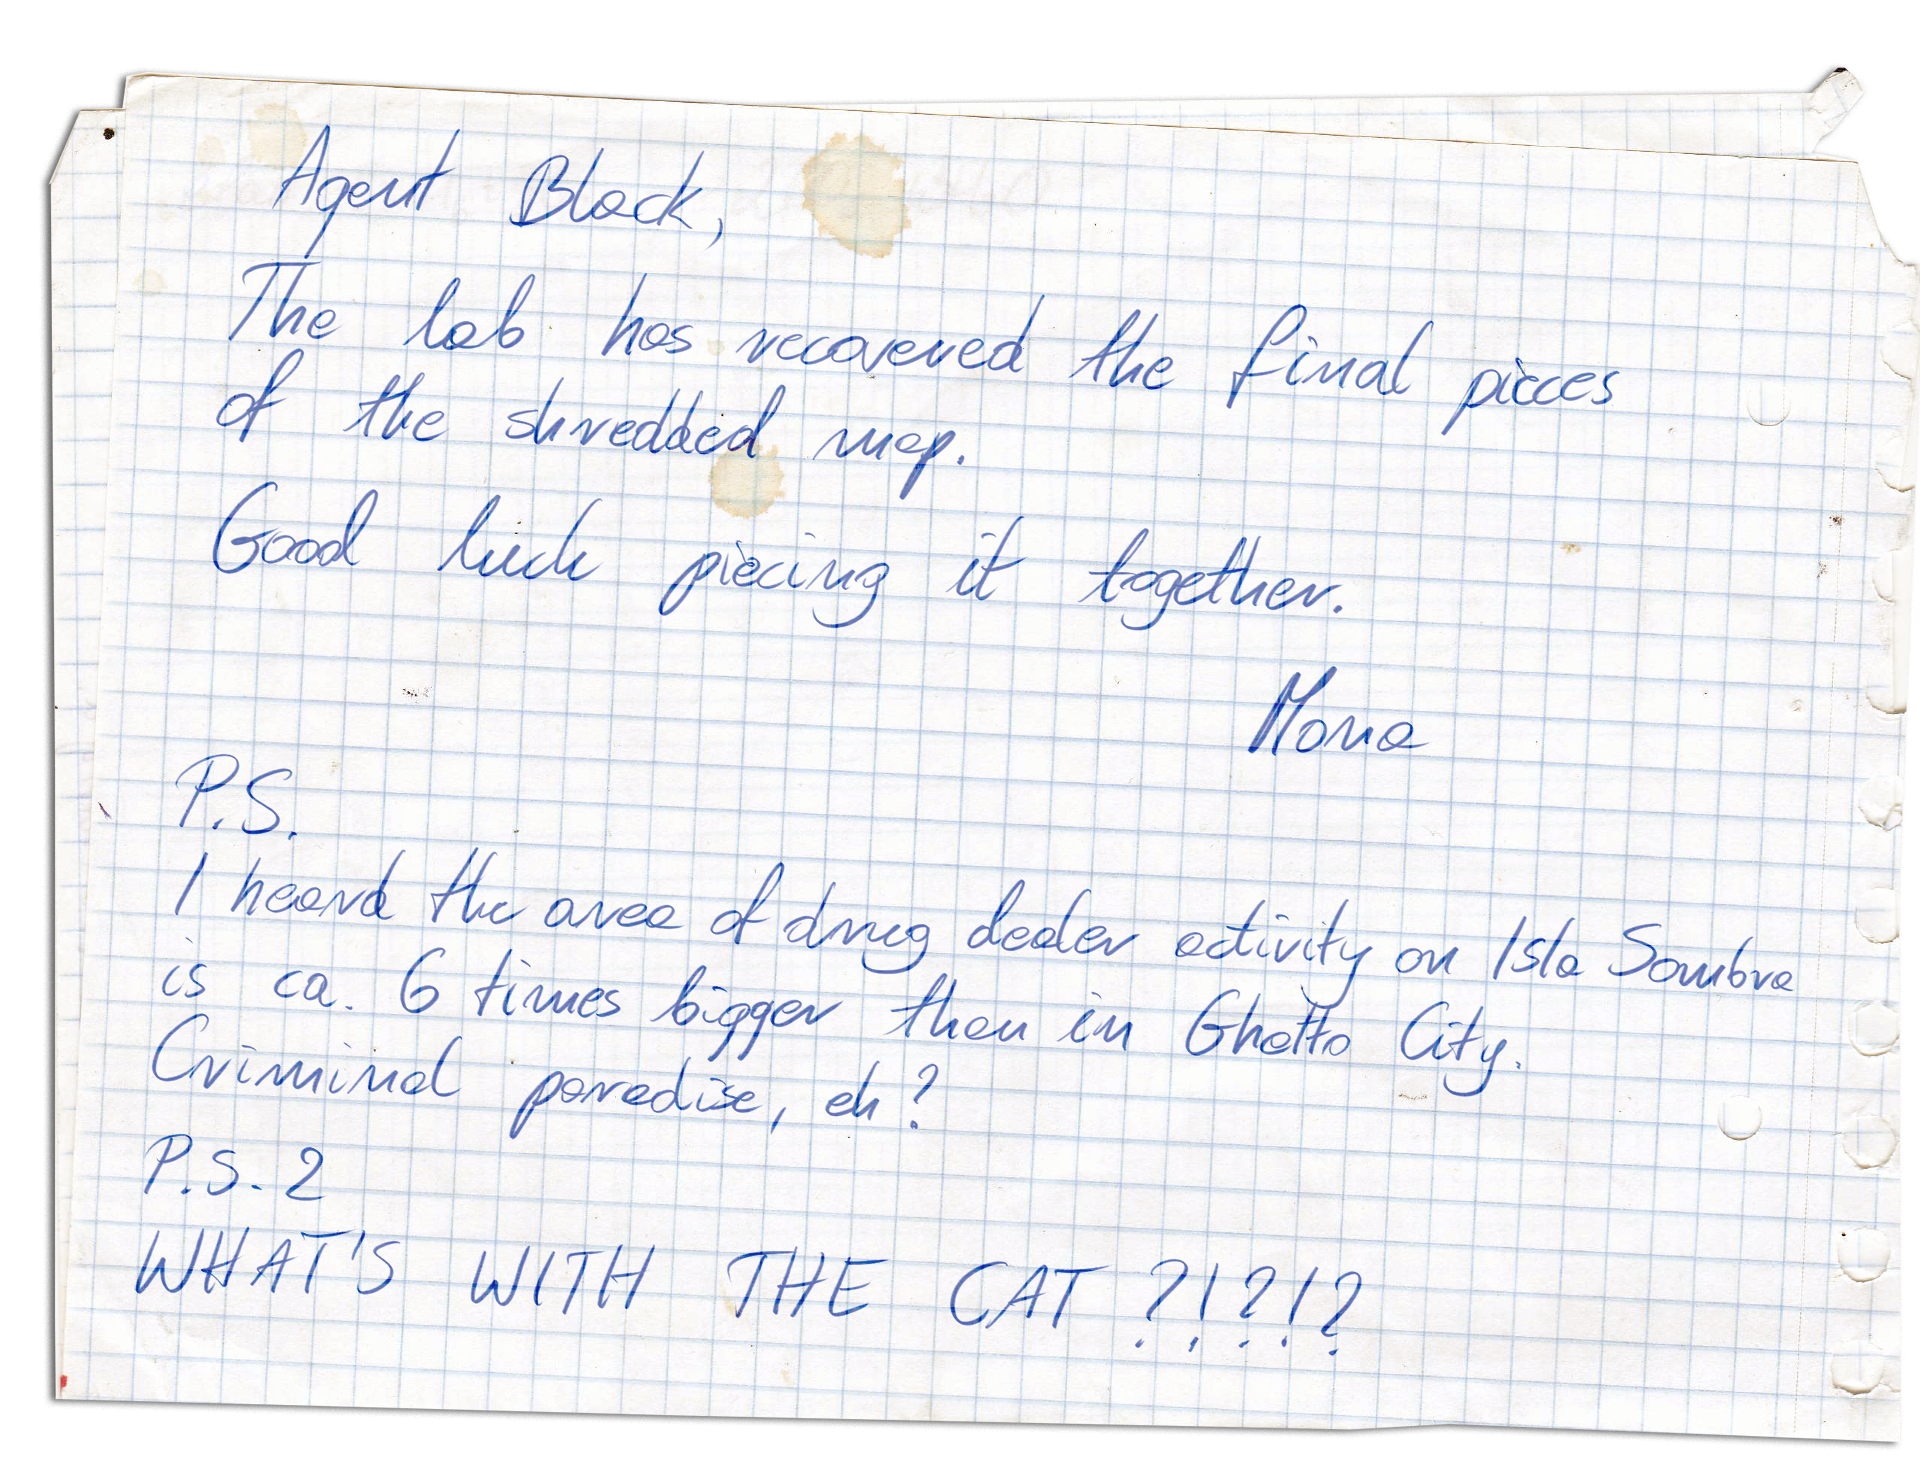 Agent Black,
The lab has recovered the final pieces
of the shredded map.
Good luck piecing it together.
Mona
P.S.
I heard the area of drug dealer activity on Isla Sombra
is ca. 6 times bigger than in Ghetto City.
Criminal paradise, eh?
P.S. 2
WHAT'S WITH THE CAT ?!?!?